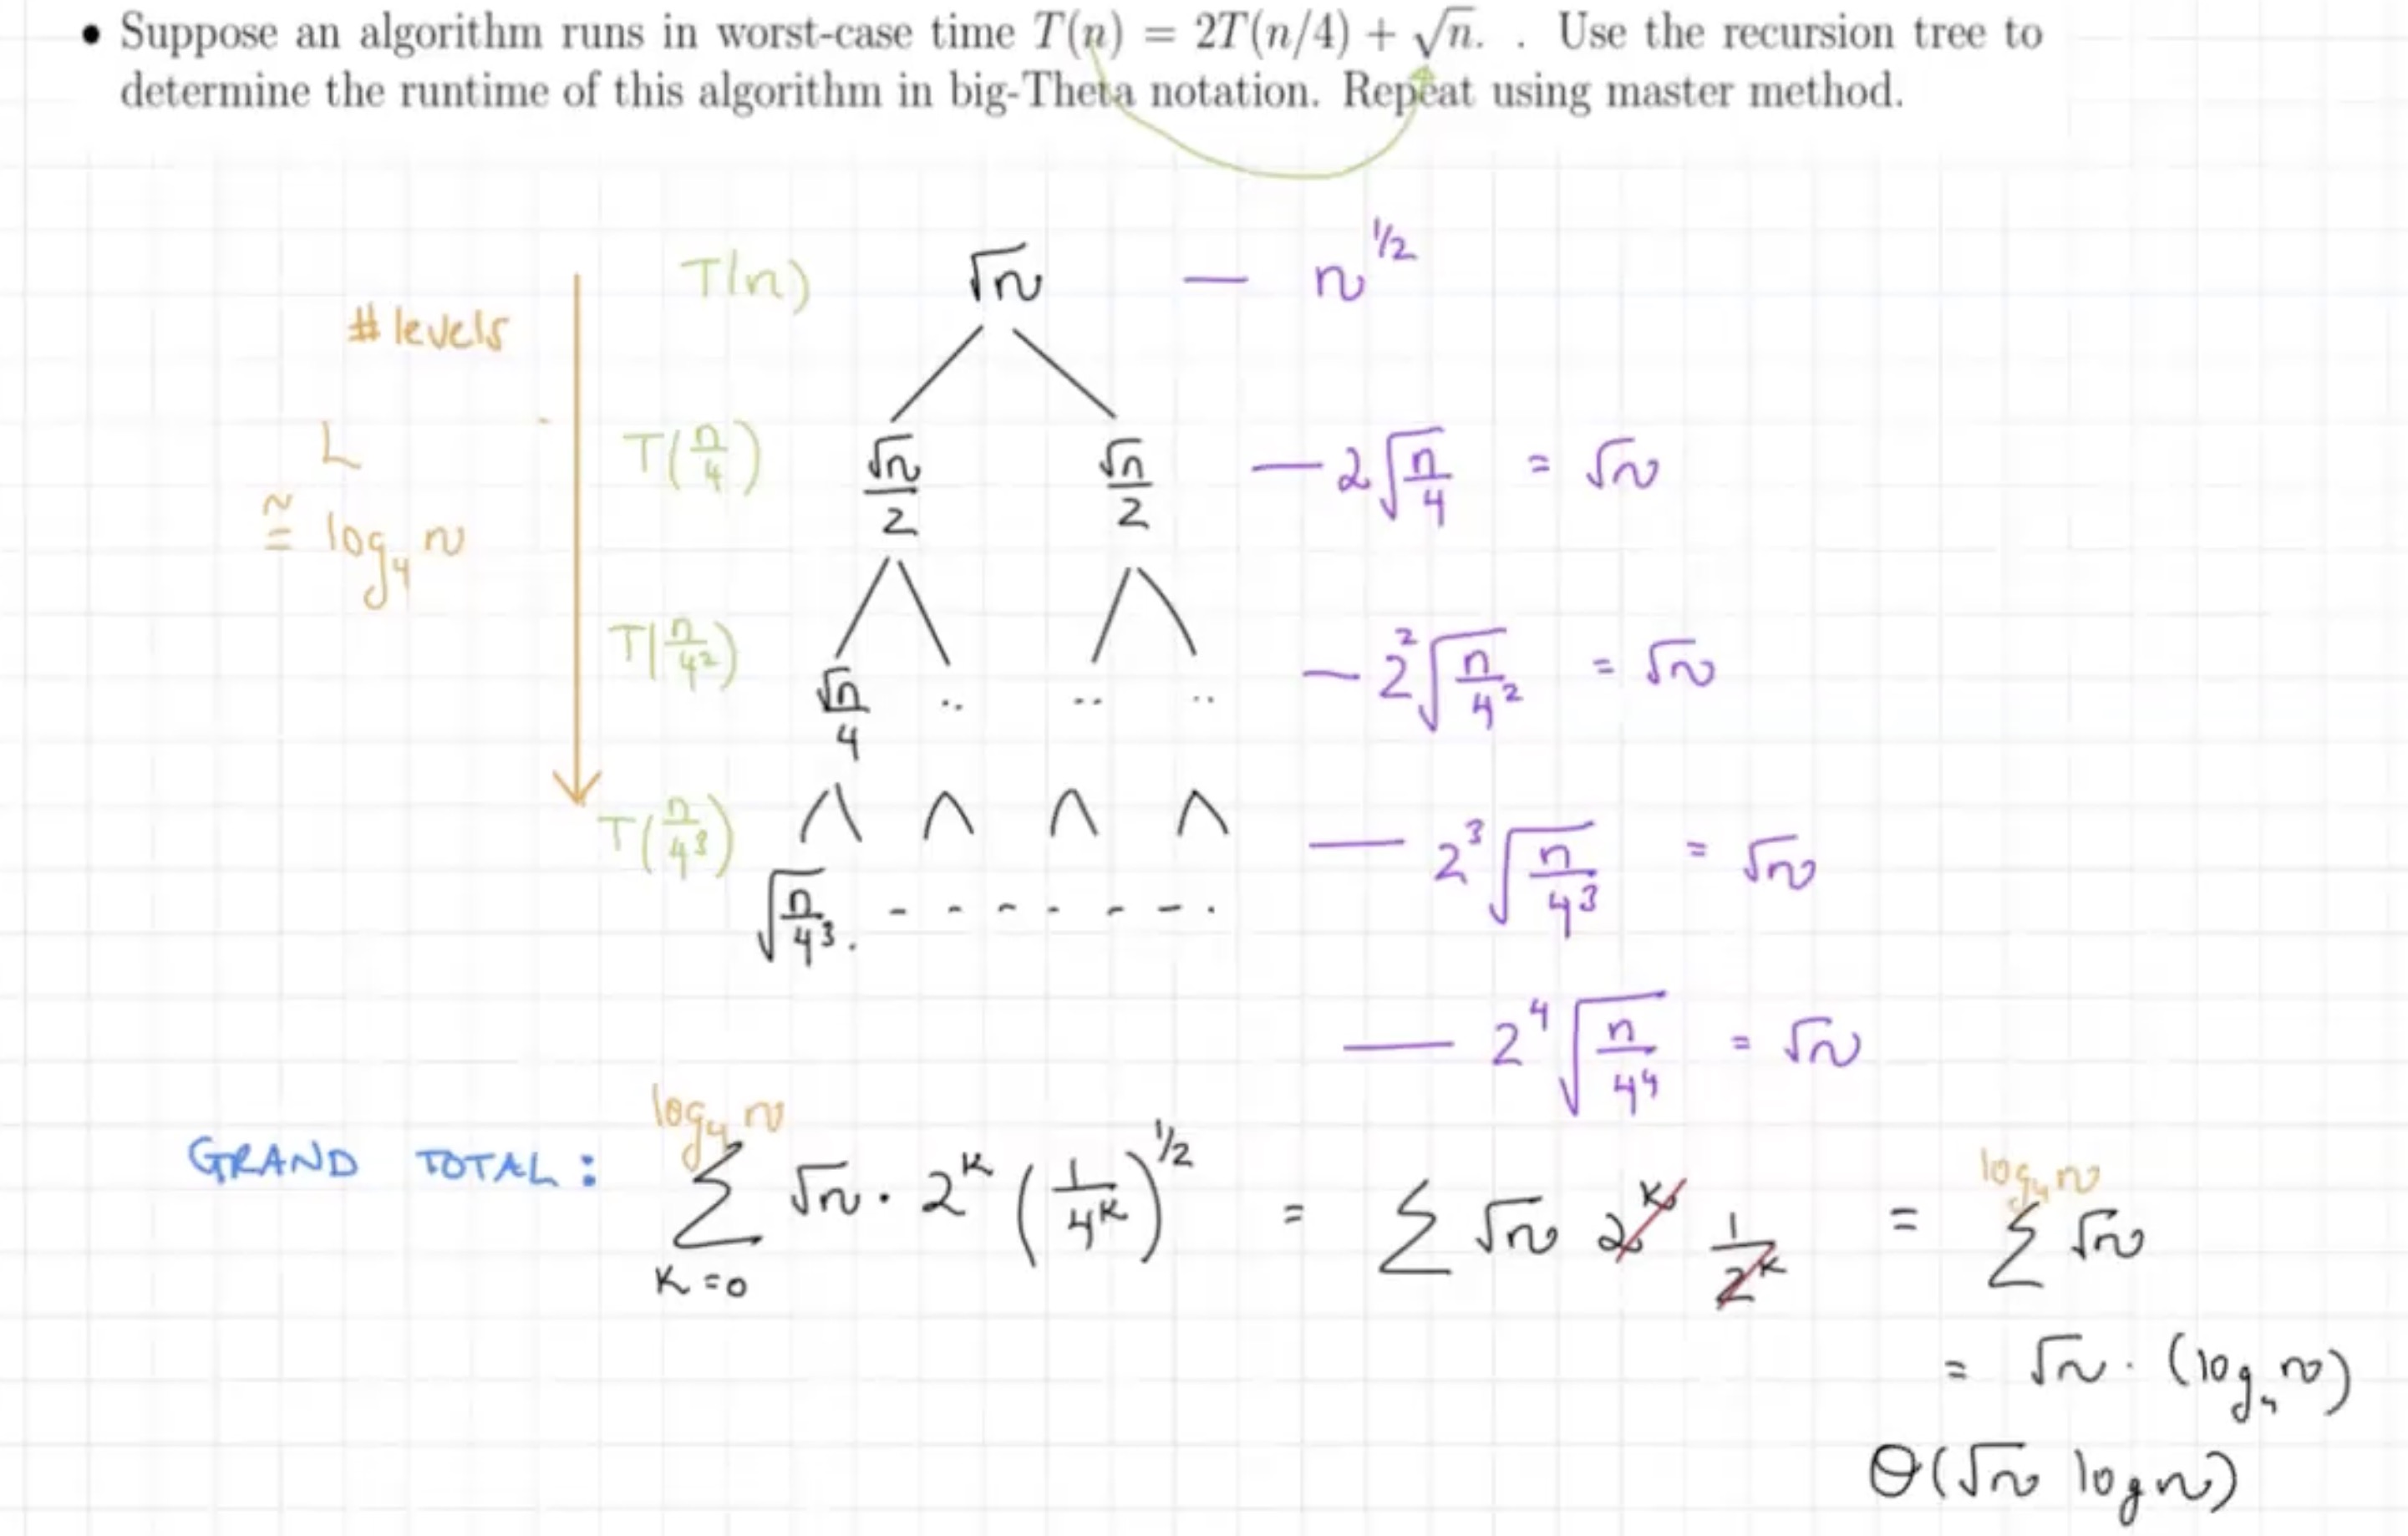 • Suppose an algorithm runs in worst-case time T(n) = 2T(n/4) + √n. . Use the recursion tree to
determine the runtime of this algorithm in big-Theta notation. Repeat using master method.
T(n) √n — n^{1/2}
# levels
T(n/4) √n/2 √n/2 — 2√(n/4) = √n
L
≅ log₄ n
T(n/4²) √n/4 .. .. .. — 2²√(n/4²) = √n
T(n/4³) — 2³√(n/4³) = √n
√(n/4³) . - - - - - - .
— 2⁴√(n/4⁴) = √n
GRAND TOTAL: ∑_{K=0}^{log₄ n} √n · 2^K (1/4^K)^{1/2} = ∑ √n 2^K 1/2^K = ∑^{log₄ n} √n
= √n · (log₄ n)
Θ(√n log n)